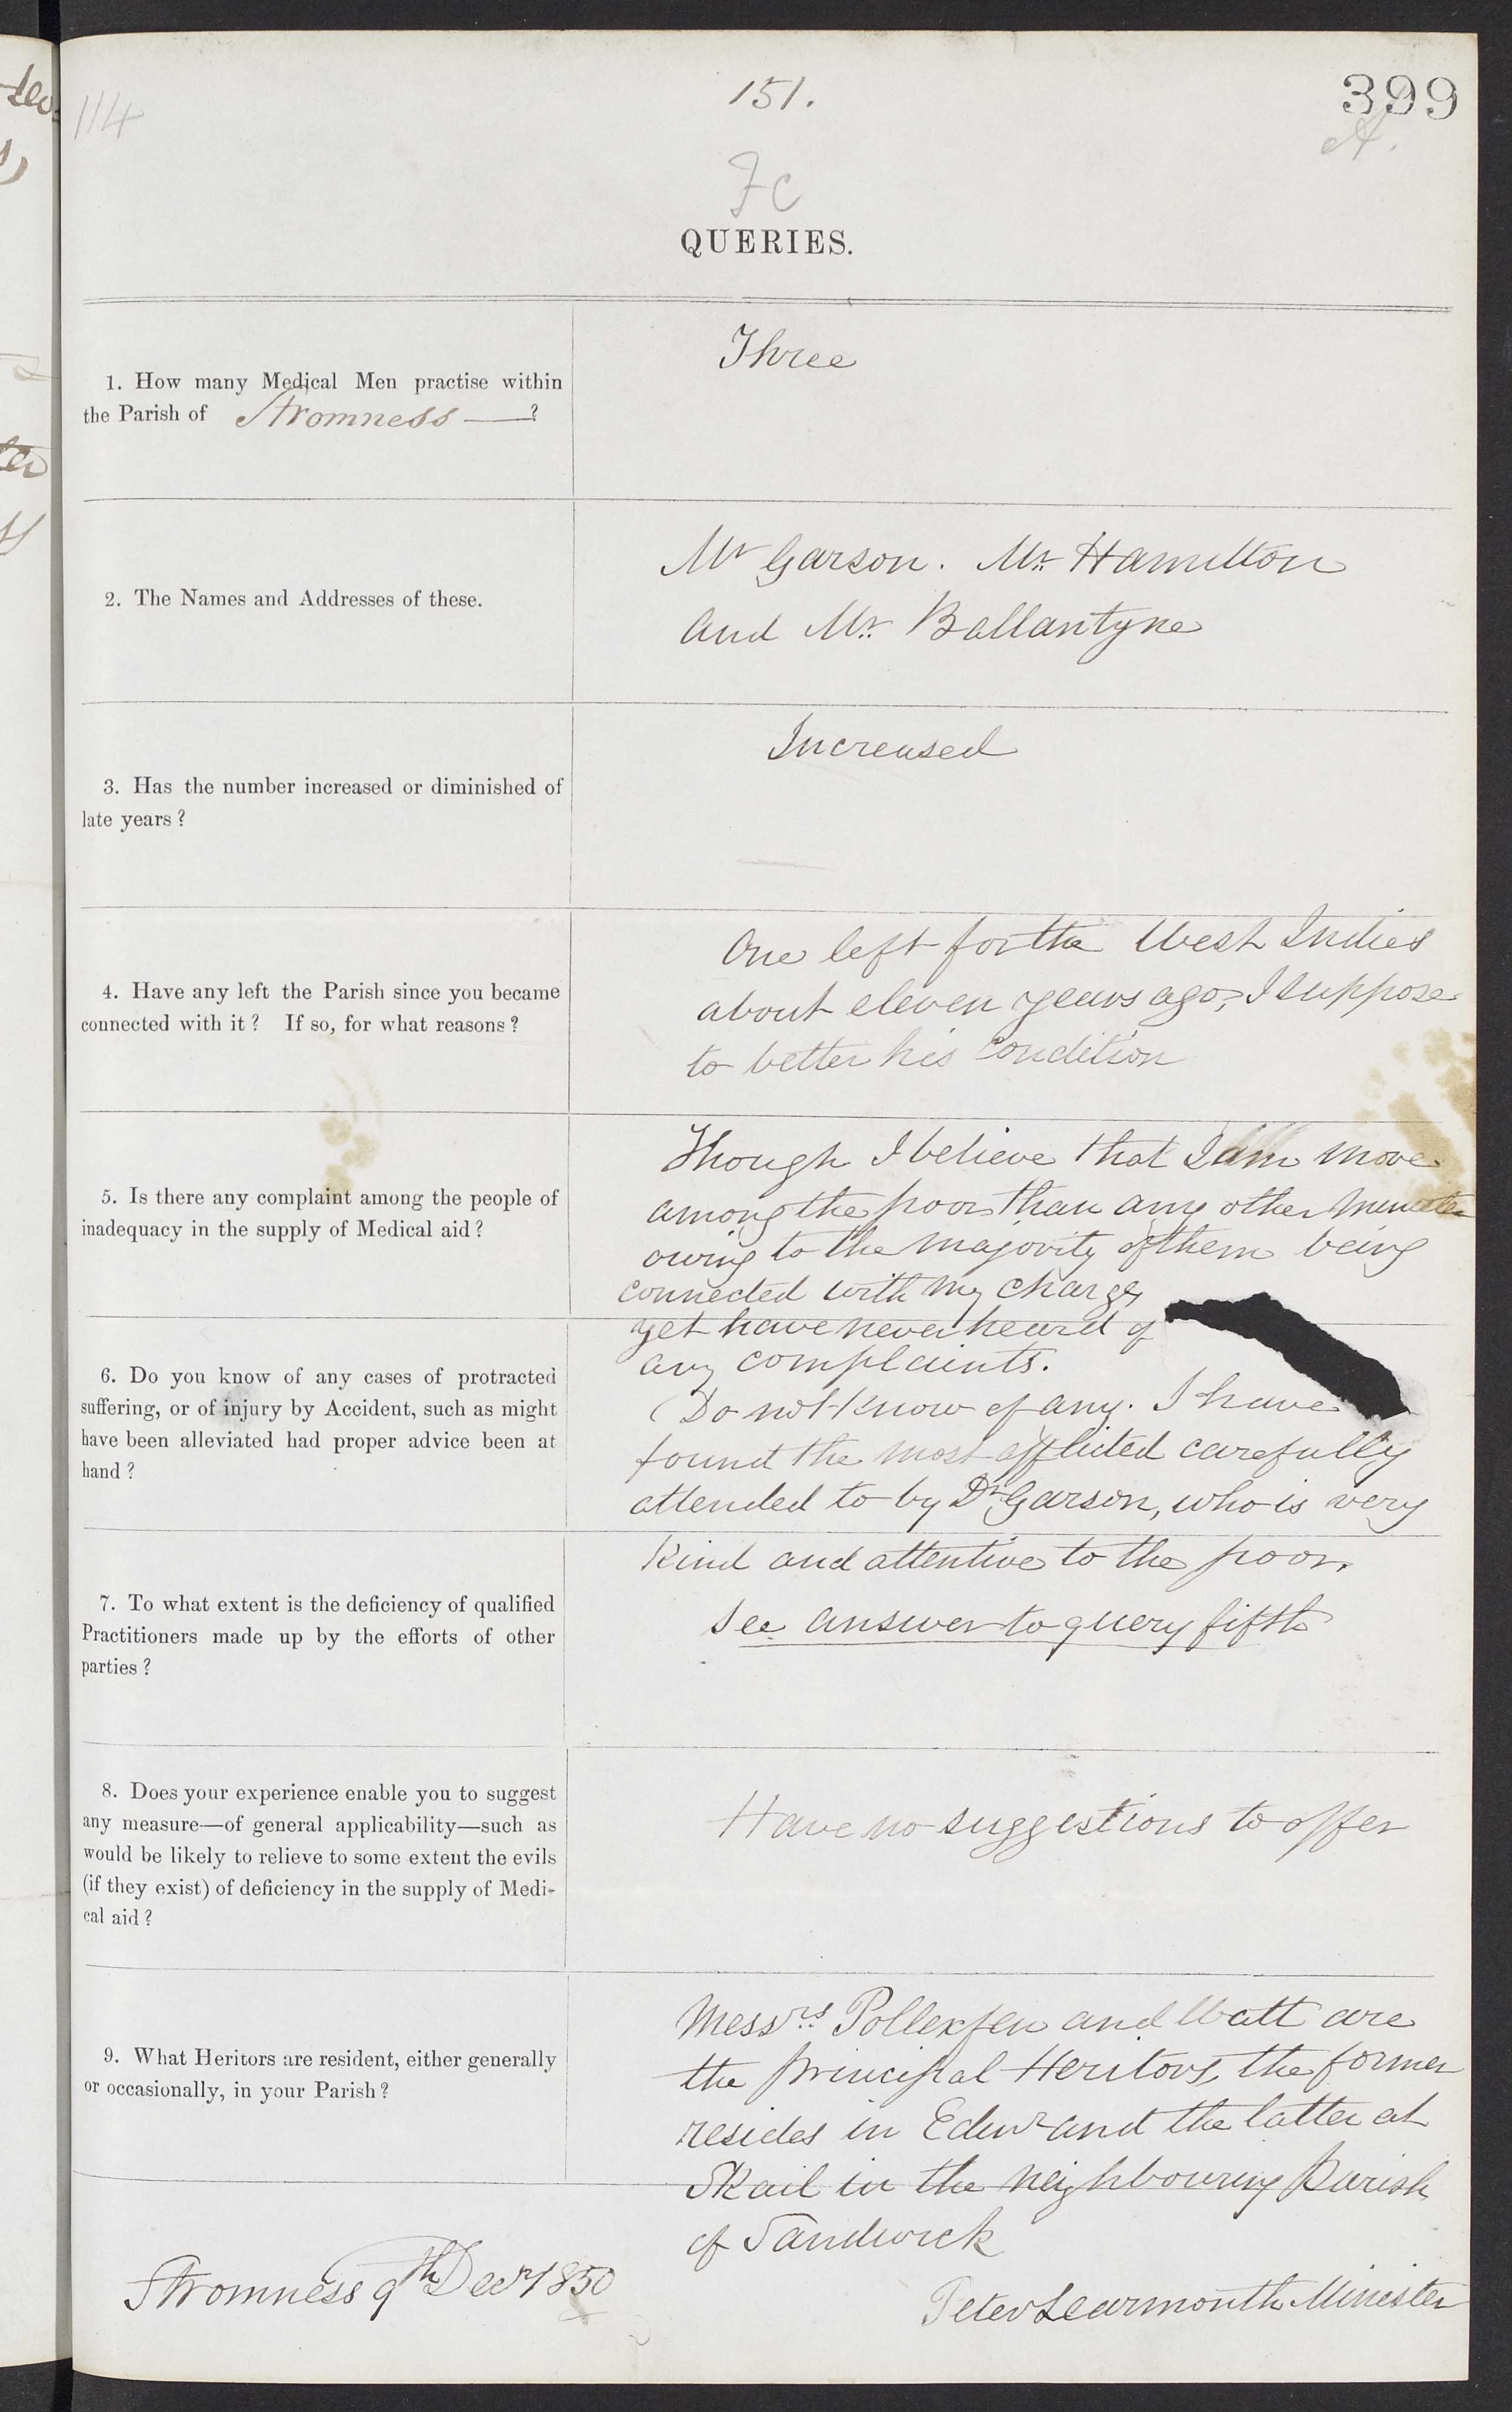 151.
399
114
A.
FC
QUERIES.
1. How many Medical Men practise within
the Parish of Stromness ?
Three
2. The Names and Addresses of these.
Mr Garson. Mr. Hamilton
and Mr. Ballantyne
3. Has the number increased or diminished of
late years ?
Increased
4. Have any left the Parish since you became
connected with it ? If so, for what reasons ?
One left for the West Indies
about eleven years ago, I suppose
to better his condition
5. Is there any complaint among the people of
inadequacy in the supply of Medical aid ?
Though I believe that I am more
among the poor than any other Minister
owing to the majority of them being
connected with my charge,
yet have never heard of
any complaints.
6. Do you know of any cases of protracted
suffering, or of injury by Accident, such as might
have been alleviated had proper advice been at
hand ?
Do not know of any. I have
found the most afflicted carefully
attended to by Dr Garson, who is very
kind and attentive to the poor.
7. To what extent is the deficiency of qualified
Practitioners made up by the efforts of other
parties ?
See answer to query fifth
8. Does your experience enable you to suggest
any measure—of general applicability—such as
would be likely to relieve to some extent the evils
(if they exist) of deficiency in the supply of Medi-
cal aid ?
Have no suggestions to offer
9. What Heritors are resident, either generally
or occasionally, in your Parish ?
Messrs. Pollexfen and Watt are
the principal Heritors, the former
resides in Edinr and the latter at
Skail in the neighbouring Parish
of Sandwick
Stromness 9th Decr 1850
Peter Learmonth Minister